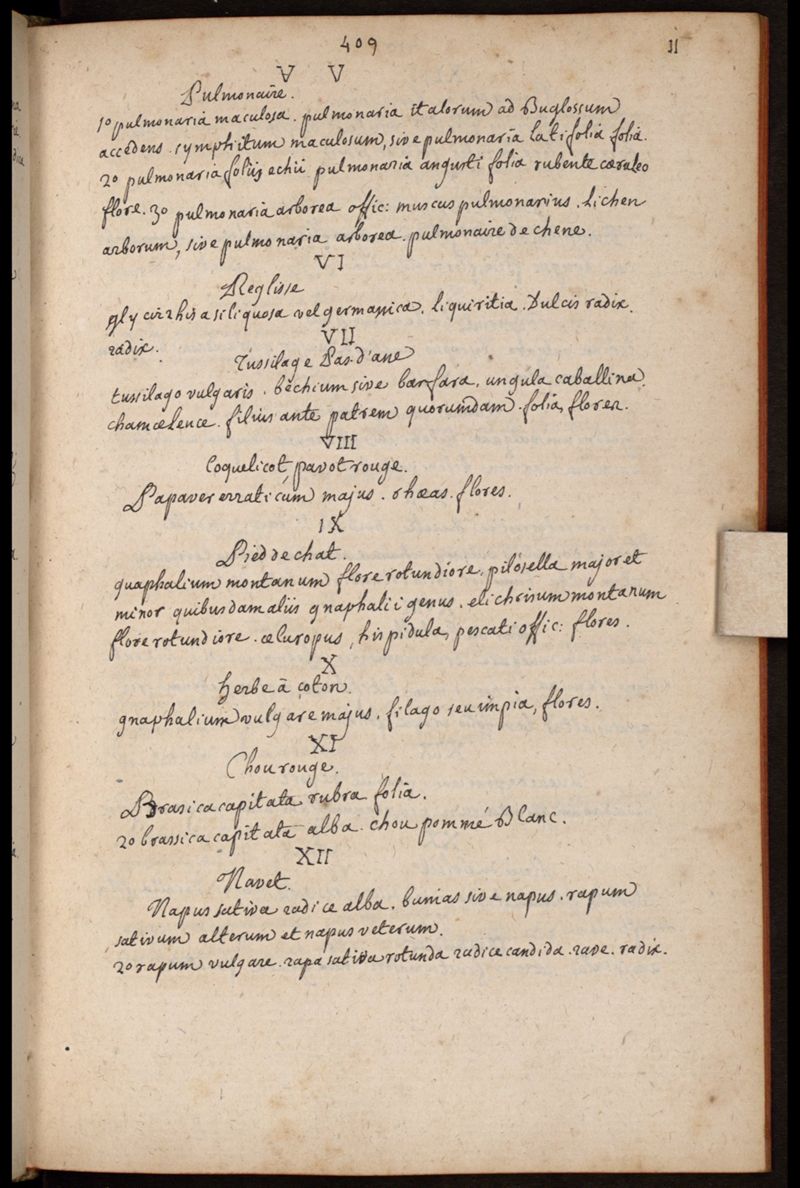 409
11
V V
Pulmonaire.
1º pulmonaria maculosa. pulmonaria italorum ad Buglossum
accedens. symphitum maculosum, sive pulmonaria latifolia folia.
2º pulmonaria foliis echii pulmonaria angusti folia rubente cæruleo
flore. 3º pulmonaria arborea offic: muscus pulmonarius. Lichen
arborum, sive pulmonaria arborea. pulmonaire de chene.
VI
Reglisse
glycirrhisa siliquosa vel germanica. liquiritia. Dulcis radix.
radix.
VII
Tussilage Pas-d'ane
tussilago vulgaris. bechium sive barfara, ungula caballina,
chamæleuce. filius ante patrem quorumdam. folia, flores.
VIII
Coquelicot pavot rouge.
Papaver erraticum majus. rhæas. flores.
IX
Pied de chat.
guaphalium montanum flore rotundiore. pilosella major et
minor quibusdam aliis gnaphalii genus. elichrisum montanum
flore rotundiore. æluropus, hispidula, pescati offic: flores.
X
herbe à coton.
gnaphalium vulgare majus. filago seu impia, flores.
XI
Chou rouge.
Brasica capitata rubra folia.
2º brassica capitata alba. chou pommé Blanc.
XII
Navet.
Napus sativa radice alba. bunias sive napus. rapum
sativum alterum et napus veterum.
2º rapum vulgare. rapa sativa rotunda radice candida. rave. radix.